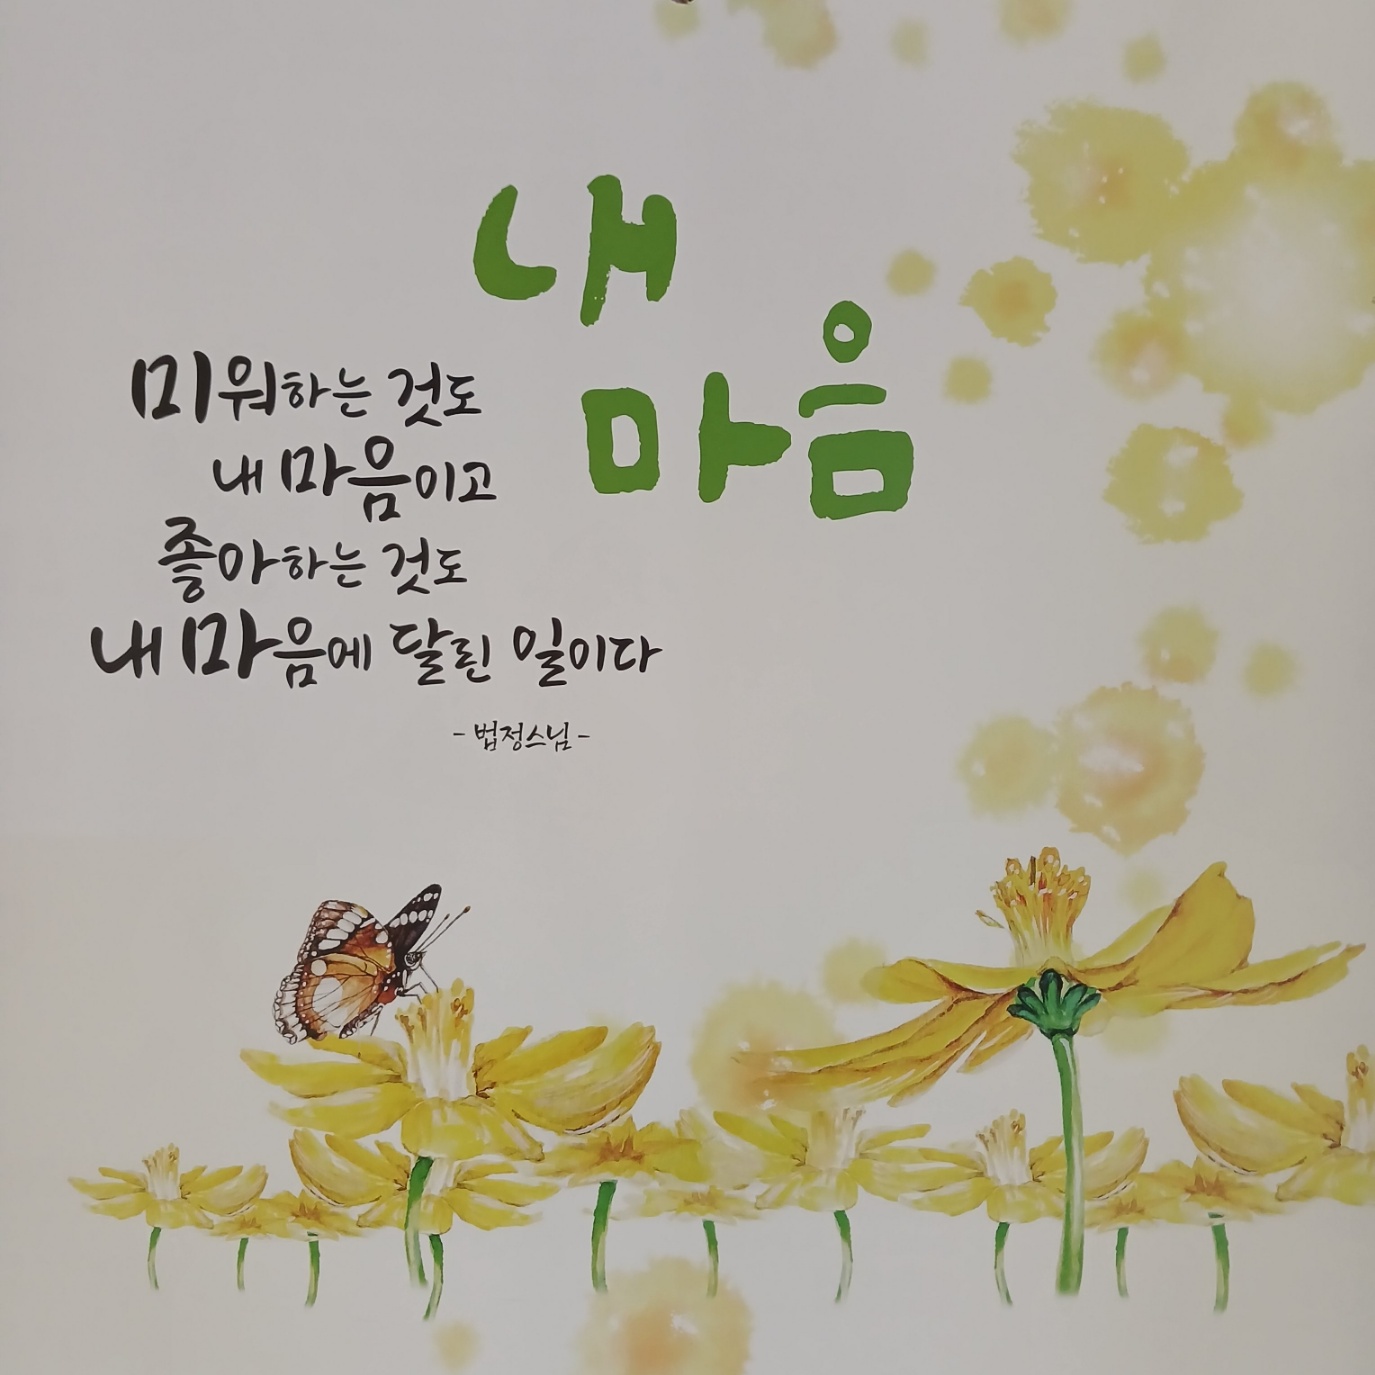 내
마음
미워하는 것도
내 마음이고
좋아하는 것도
내 마음에 달린 일이다
- 법정스님 -